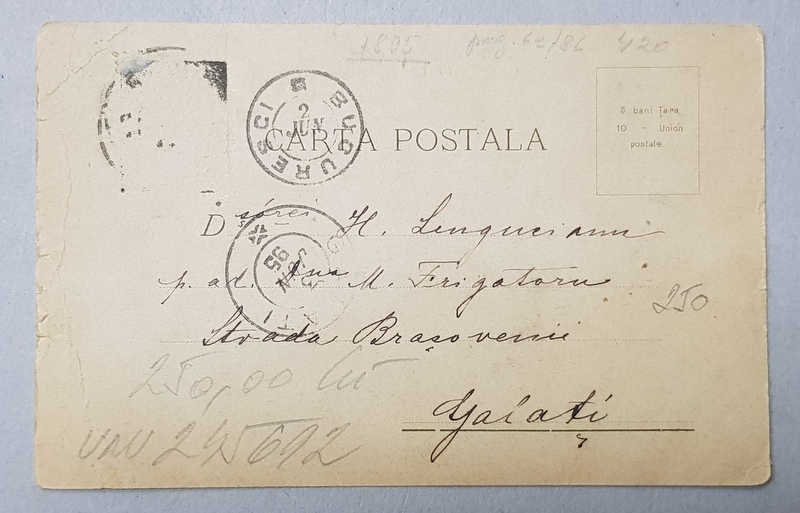 1895 pag. 63/86 420
BUCURESCI
2
JUN
CARTA POSTALA
5 bani Tara
10 - Union
postale.
D sórei H. Lenguceanu
p. ad. Dna M. Frigatoru
Strada Brașovenii
Galați
95
250
250,00 lei
245692